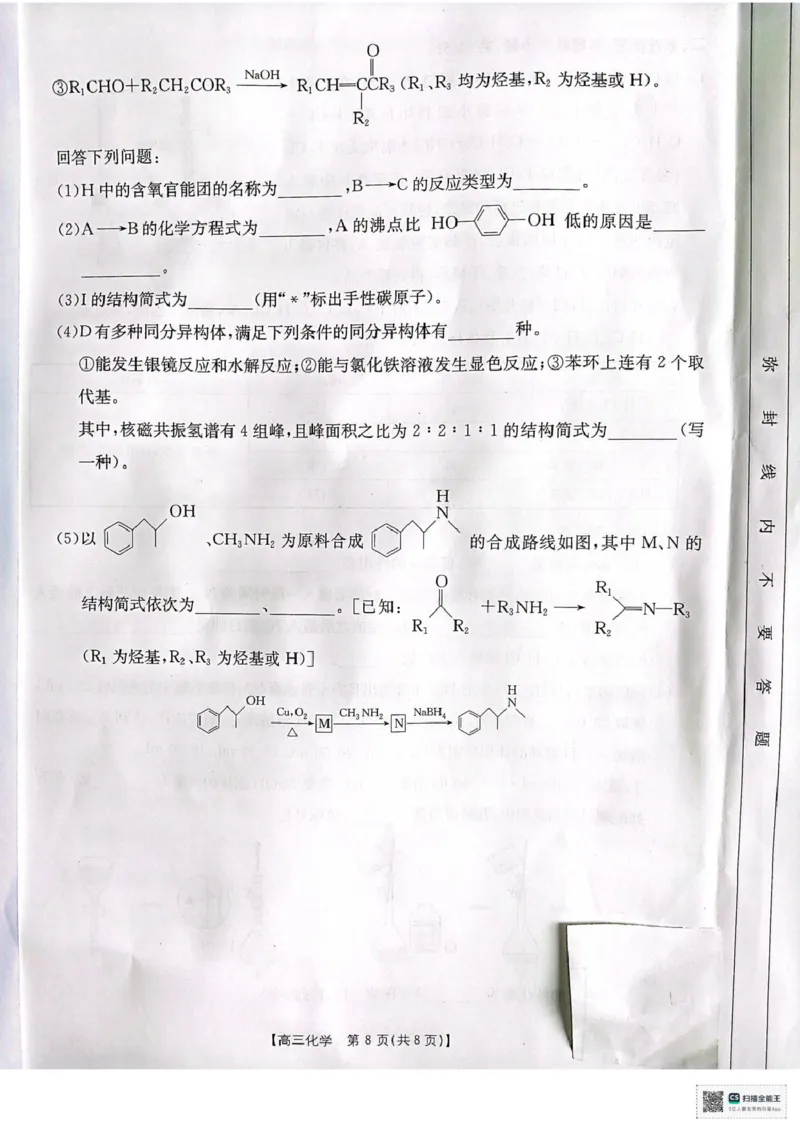 ③R₁CHO+R₂CH₂COR₃ NaOH→ R₁CH=CCR₃(R₁、R₃ 均为烃基,R₂ 为烃基或 H)。
O
R₂
回答下列问题:
(1)H 中的含氧官能团的名称为________,B→C 的反应类型为________。
(2)A→B 的化学方程式为________,A 的沸点比 HO OH 低的原因是________
________。
(3)I 的结构简式为________(用“*”标出手性碳原子)。
(4)D 有多种同分异构体,满足下列条件的同分异构体有________种。
①能发生银镜反应和水解反应;②能与氯化铁溶液发生显色反应;③苯环上连有 2 个取
代基。
其中,核磁共振氢谱有 4 组峰,且峰面积之比为 2∶2∶1∶1 的结构简式为________(写
一种)。
(5)以 OH 、CH₃NH₂ 为原料合成 H N 的合成路线如图,其中 M、N 的
结构简式依次为________、________。[已知: O R₁ R₂ +R₃NH₂ → R₁ R₂ N—R₃
(R₁ 为烃基,R₂、R₃ 为烃基或 H)]
OH Cu,O₂ △ M CH₃NH₂ N NaBH₄ H N
【高三化学 第 8 页(共 8 页)】
弥封线内不要答题
CS 扫描全能王
3亿人都在用的扫描App